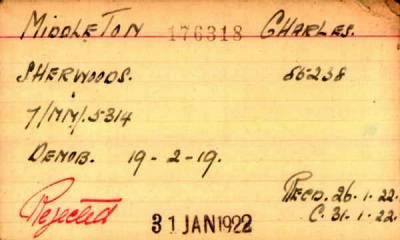 MIDDLETON 176318 CHARLES.
SHERWOODS. 86238
7/MM/.5314
DEMOB. 19-2-19.
RECD. 26.1.22.
Rejected 31 JAN 1922 C. 31.1.22.